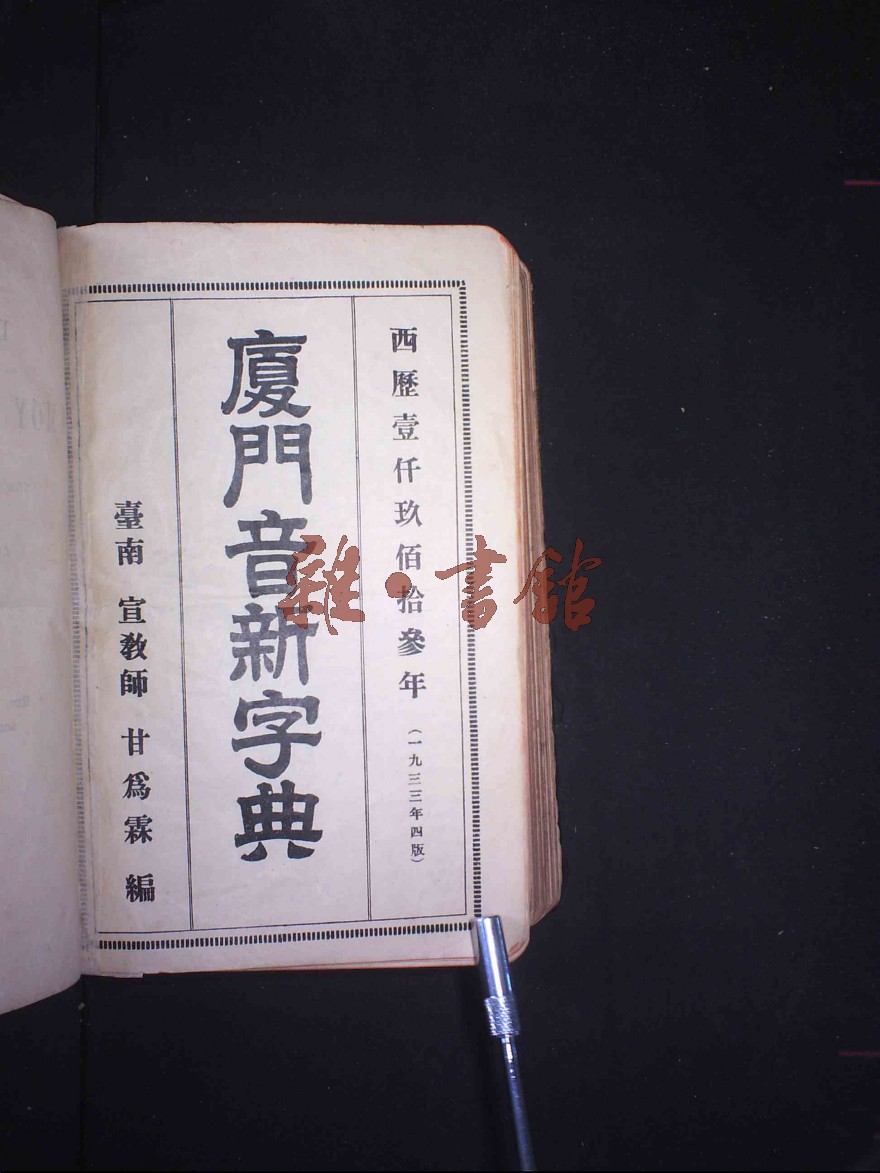 西歷壹仟玖佰拾參年(一九三三年四版)
廈門音新字典
臺南 宣教師 甘爲霖 編
雜·書館